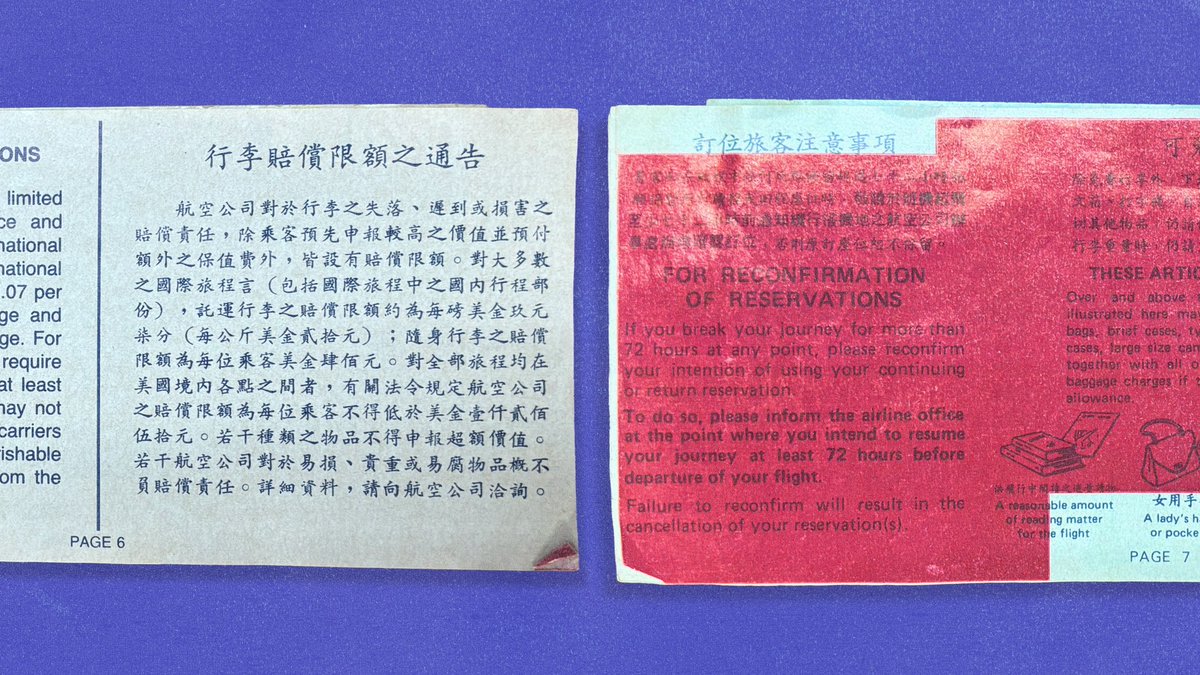 ONS
limited
ce and
national
national
.07 per
ge and
ge. For
require
at least
may not
carriers
rishable
om the
行李賠償限額之通告
航空公司對於行李之失落、遲到或損害之
賠償責任，除乘客預先申報較高之價值並預付
額外之保值費外，皆設有賠償限額。對大多數
之國際旅程言（包括國際旅程中之國內行程部
份），託運行李之賠償限額約為每磅美金玖元
柒分（每公斤美金貳拾元）；隨身行李之賠償
限額為每位乘客美金肆佰元。對全部旅程均在
美國境內各點之間者，有關法令規定航空公司
之賠償限額為每位乘客不得低於美金壹仟貳佰
伍拾元。若干種類之物品不得申報超額價值。
若干航空公司對於易損、貴重或易腐物品概不
負賠償責任。詳細資料，請向航空公司洽詢。
PAGE 6
訂位旅客注意事項
FOR RECONFIRMATION
OF RESERVATIONS
If you break your journey for more than
72 hours at any point, please reconfirm
your intention of using your continuing
or return reservation.
To do so, please inform the airline office
at the point where you intend to resume
your journey at least 72 hours before
departure of your flight.
Failure to reconfirm will result in the
cancellation of your reservation(s).
可
THESE ARTIC
Over and above
illustrated here may
bags, brief cases, t
cases, large size can
together with all o
baggage charges if
allowance.
A reasonable amount
of reading matter
for the flight
女用手
A lady's h
or pocke
PAGE 7